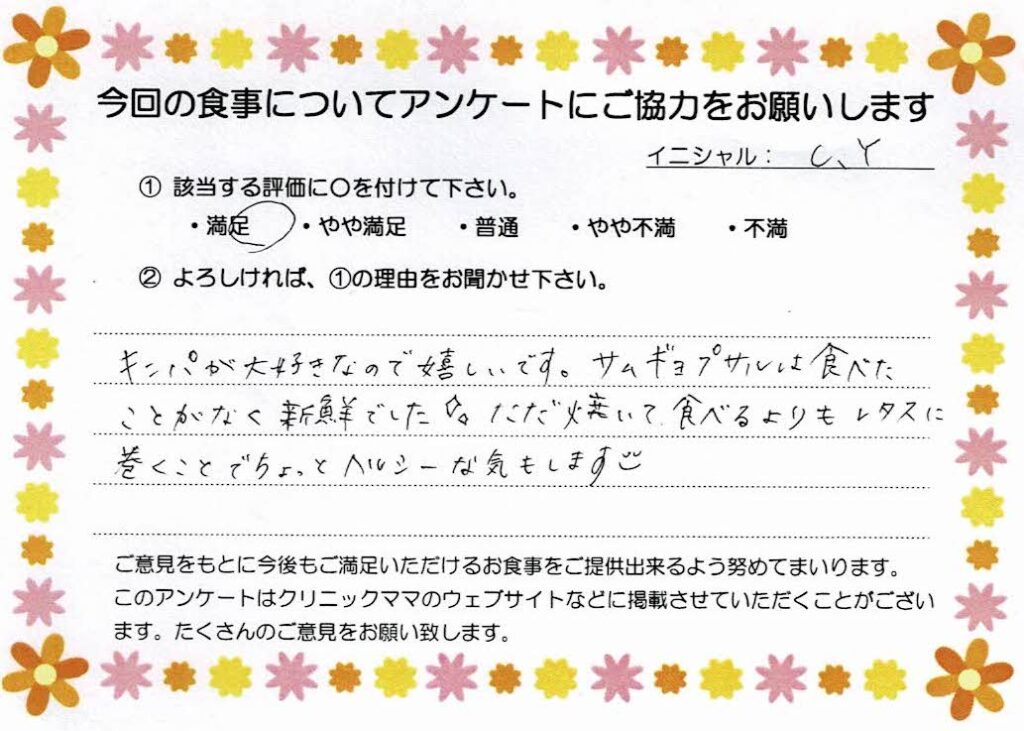 今回の食事についてアンケートにご協力をお願いします
イニシャル： C、Y
① 該当する評価に〇を付けて下さい。
・満足 ・やや満足 ・普通 ・やや不満 ・不満
② よろしければ、①の理由をお聞かせ下さい。
キンパが大好きなので嬉しいです。サムギョプサルは食べた
ことがなく新鮮でした。ただ焼いて食べるよりもレタスに
巻くことでちょっとヘルシーな気もします
ご意見をもとに今後もご満足いただけるお食事をご提供出来るよう努めてまいります。
このアンケートはクリニックママのウェブサイトなどに掲載させていただくことがござい
ます。たくさんのご意見をお願い致します。